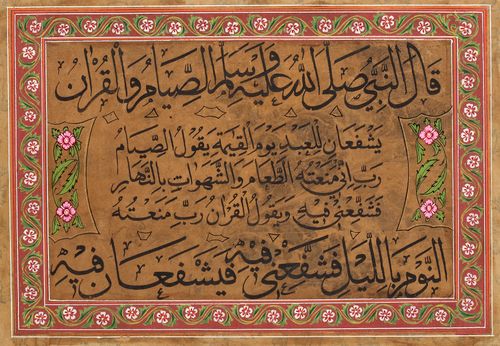 قال النبي صلى الله عليه وسلم الصيام والقرآن
يشفعان للعبد يوم القيمة يقول الصيام
رب اني منعته الطعام والشهوات بالنهار
فشفعني فيه ويقول القرآن رب منعته
النوم بالليل فشفعني فيه فيشفعان فيه